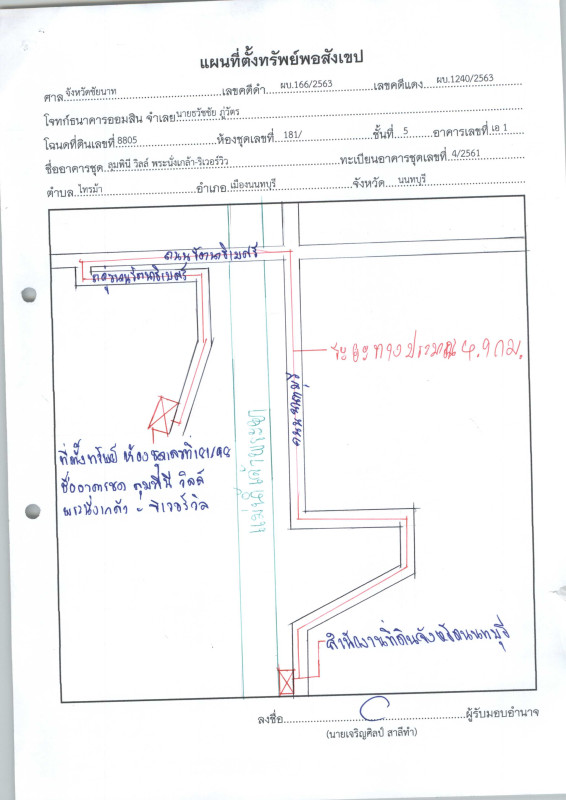 แผนที่ตั้งทรัพย์พอสังเขป
ศาล จังหวัดชัยนาท เลขคดีดำ ผบ.166/2563 เลขคดีแดง ผบ.1240/2563
โจทก์ธนาคารออมสิน จำเลย นายธวัชชัย ภู่วัตร
โฉนดที่ดินเลขที่ 8805 ห้องชุดเลขที่ 181/ ชั้นที่ 5 อาคารเลขที่ เอ 1
ชื่ออาคารชุด ลุมพินี วิลล์ พระนั่งเกล้า-ริเวอร์วิว ทะเบียนอาคารชุดเลขที่ 4/2561
ตำบล ไทรม้า อำเภอ เมืองนนทบุรี จังหวัด นนทบุรี
ถนนรัตนาธิเบศร์
ถนนรัตนาธิเบศร์
ระยะทางประมาณ 4.9 กม.
ถนนนนทบุรี
แม่น้ำเจ้าพระยา
ที่ตั้งทรัพย์ ห้องชุดเลขที่ 181/
ชื่ออาคารชุด ลุมพินี วิลล์
พระนั่งเกล้า - ริเวอร์วิว
สำนักงานที่ดินจังหวัดนนทบุรี
ลงชื่อ ผู้รับมอบอำนาจ
(นายเจริญศิลป์ สาลีทำ)